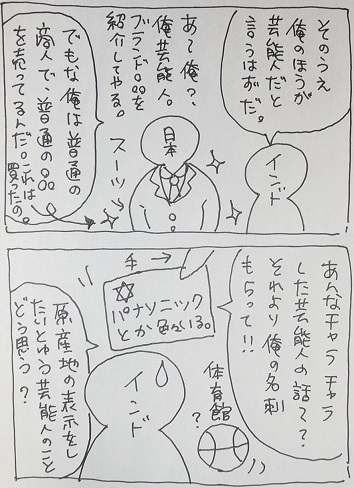 そのうえ
俺のほうが
芸能人だと
言うはずだ。
インド
あ〜俺？、
俺芸能人。
ブランド品を
紹介してやる。
日本
スーツ
でもな俺は普通の
商人で、普通の品
を売ってるんだ。これは
買ったの。
あんなチャラチャラ
した芸能人の話？
それより俺の名刺
もらって!!
手
パナソニック
とか色々いる。
体育館
?
インド
原産地の表示をし
たいとゆう芸能人のこと
どう思う？